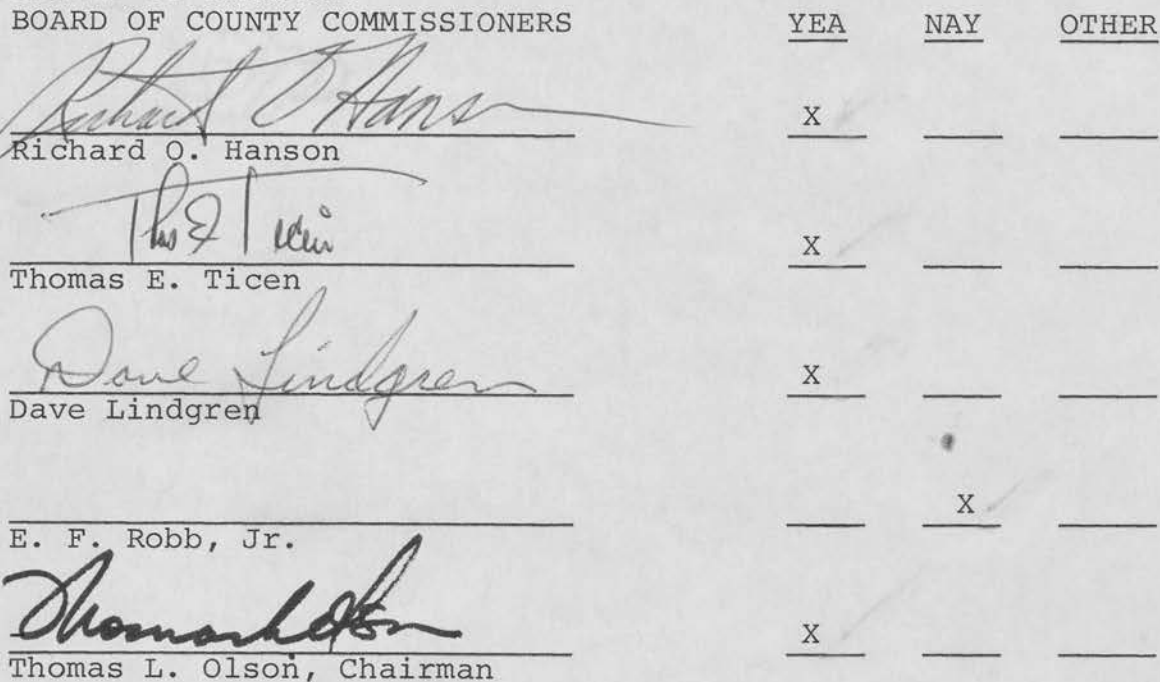 BOARD OF COUNTY COMMISSIONERS YEA NAY OTHER
Richard O Hanson
X
Richard O. Hanson
Thos E Ticen
X
Thomas E. Ticen
Dave Lindgren
X
Dave Lindgren
X
E. F. Robb, Jr.
Thomas L Olson
X
Thomas L. Olson, Chairman